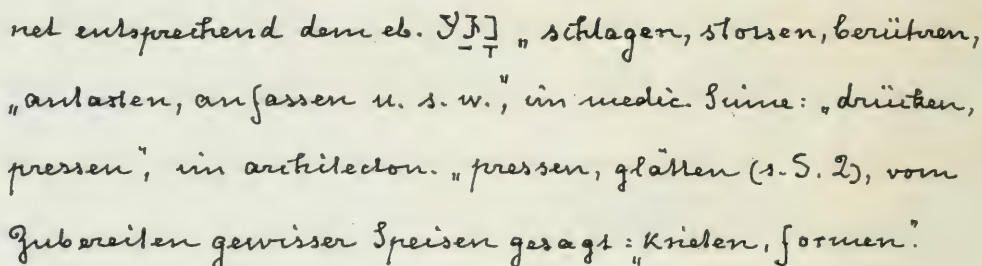 net entsprechend dem eb. נָגַע „schlagen, stossen, berühren,
„antasten, anfassen u. s. w.“, im medic. Sinne: „drücken,
pressen“, im architecton. „pressen, glätten (s. S. 2), vom
Zubereiten gewisser Speisen gesagt: „kneten, formen“.